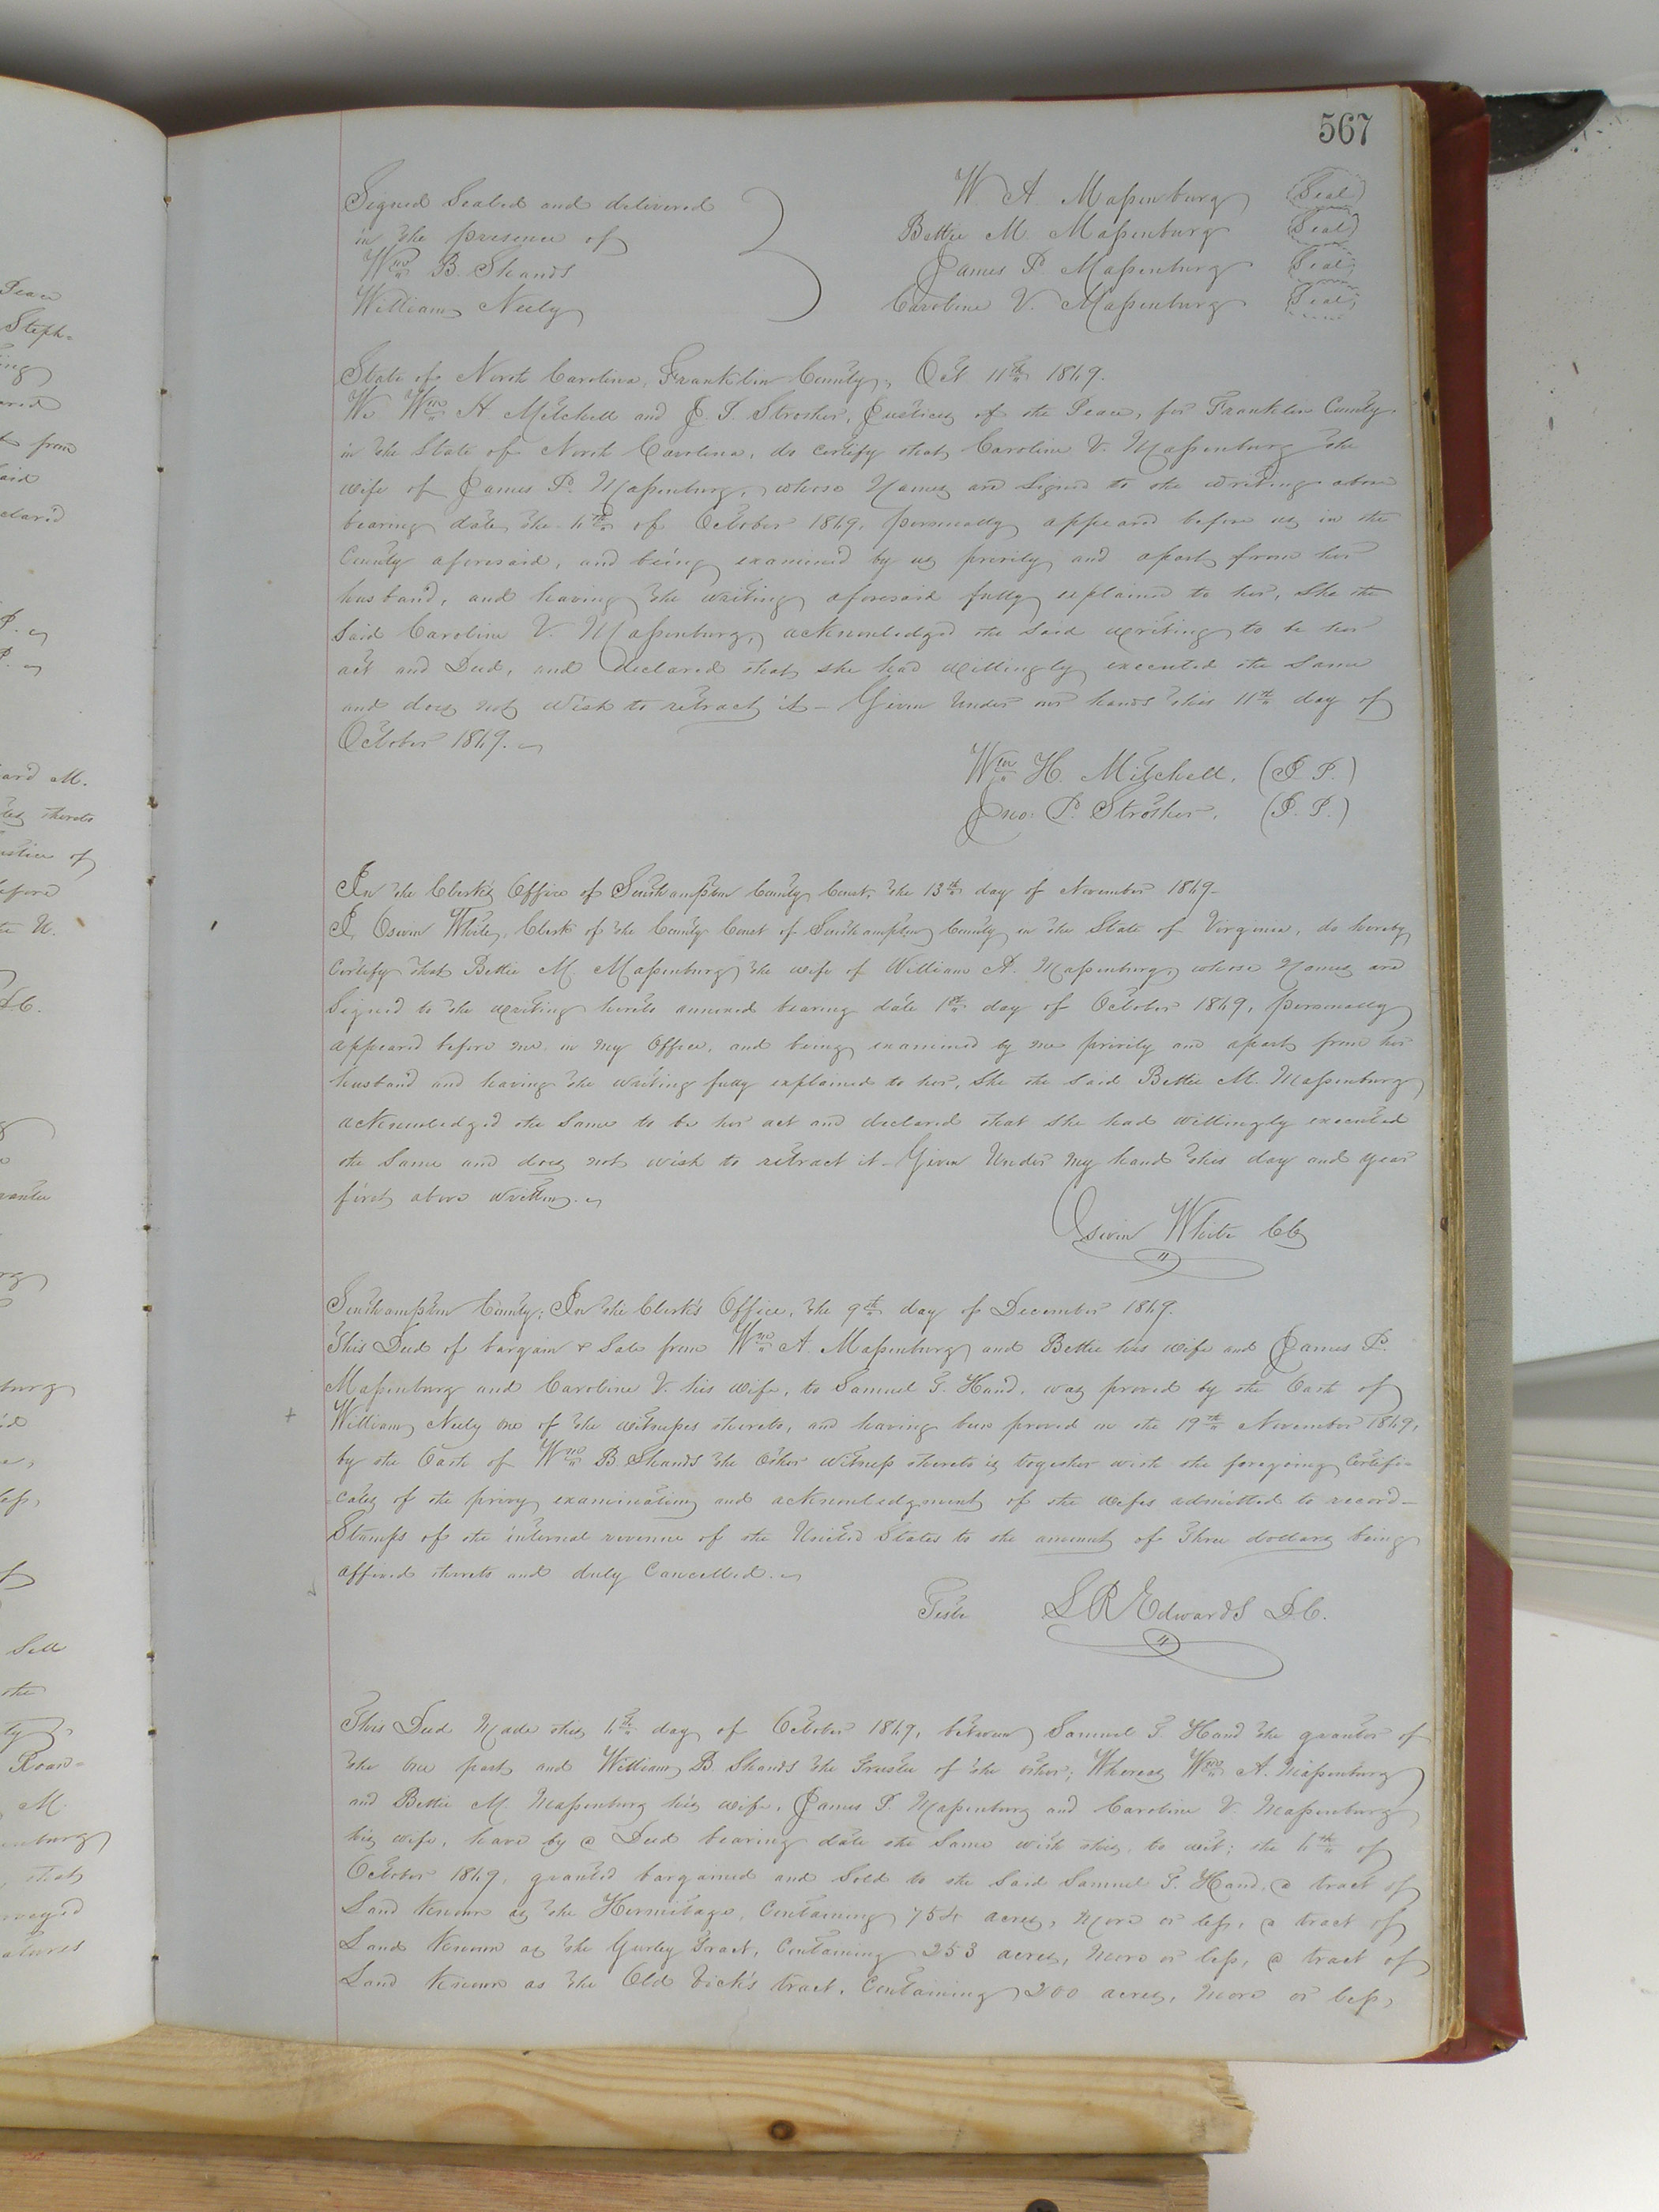 567
Signed Sealed and delivered
in the presence of
Wm B. Shands
William Neely
W A. Massenburg (Seal)
Bettie M. Massenburg (Seal)
James P. Massenburg (Seal)
Caroline V. Massenburg (Seal)
State of North Carolina, Franklin County, Oct 11th 1869.
We Wm H Mitchell and J. P. Strother, Justices of the Peace, for Franklin County
in the State of North Carolina, do certify that Caroline V. Massenburg the
wife of James P. Massenburg, whose Names are Signed to the writing above
bearing date the of October 1869, personally appeared before us in the
County aforesaid, and being examined by us privily and apart from her
husband, and having the writing aforesaid fully explained to her, She the
Said Caroline V. Massenburg, acknowledged the Said writing to be her
act and Deed, and declared that she had willingly executed the Same
and does not wish to retract it - Given Under our hands this 11th day of
October 1869.
Wm H. Mitchell. (J. P.)
Jno: P. Strother. (J. P.)
In the Clerk's Office of Southampton County Court, the 13th day of November 1869-
I, White, Clerk of the County Court of Southampton County in the State of Virginia, do hereby
Certify that Bettie M. Massenburg the wife of William A. Massenburg, whose Names are
Signed to the writing hereto annexed bearing date day of October 1869, personally
appeared before me in my Office, and being examined by me privily and apart from her
husband and having the writing fully explained to her, She the Said Bettie M. Massenburg
acknowledged the Same to be her act and declared that She had willingly executed
the Same and does not wish to retract it - Given Under My hand this day and year
first above written.
White CC
Southampton County; In the Clerk's Office, the 9th day of December 1869.
This Deed of bargain & Sale from Wm A. Massenburg and Bettie his wife and James P.
Massenburg and Caroline V. his wife, to Samuel T. Hand, was proved by the Oath of
William Neely one of the witnesses thereto, and having been proved on the 19th November 1869,
by the Oath of Wm B. Shands the Other Witness thereto is together with the foregoing Certifi-
=cates of the privy examinations and acknowledgments of the wifes admitted to record-
Stamps of the internal revenue of the United States to the amount of Three dollars being
affixed thereto and duly Cancelled.
Teste L R Edwards D.C.
This Deed Made this day of October 1869, between Samuel T. Hand the grantor of
the one part and William B. Shands the Trustee of the other; Whereas Wm A. Massenburg
and Bettie M. Massenburg his wife, James P. Massenburg and Caroline V. Massenburg
his wife, have by a Deed bearing date the Same with this, to wit; the of
October 1869, granted bargained and Sold to the Said Samuel T. Hand, a tract of
Land Known as the Hermitage, Containing 754 acres, More or less, a tract of
Land Known as the Gurley Tract, Containing 253 acres, More or less, a tract of
Land Known as the Old Vick's tract, Containing 200 acres, More or less,